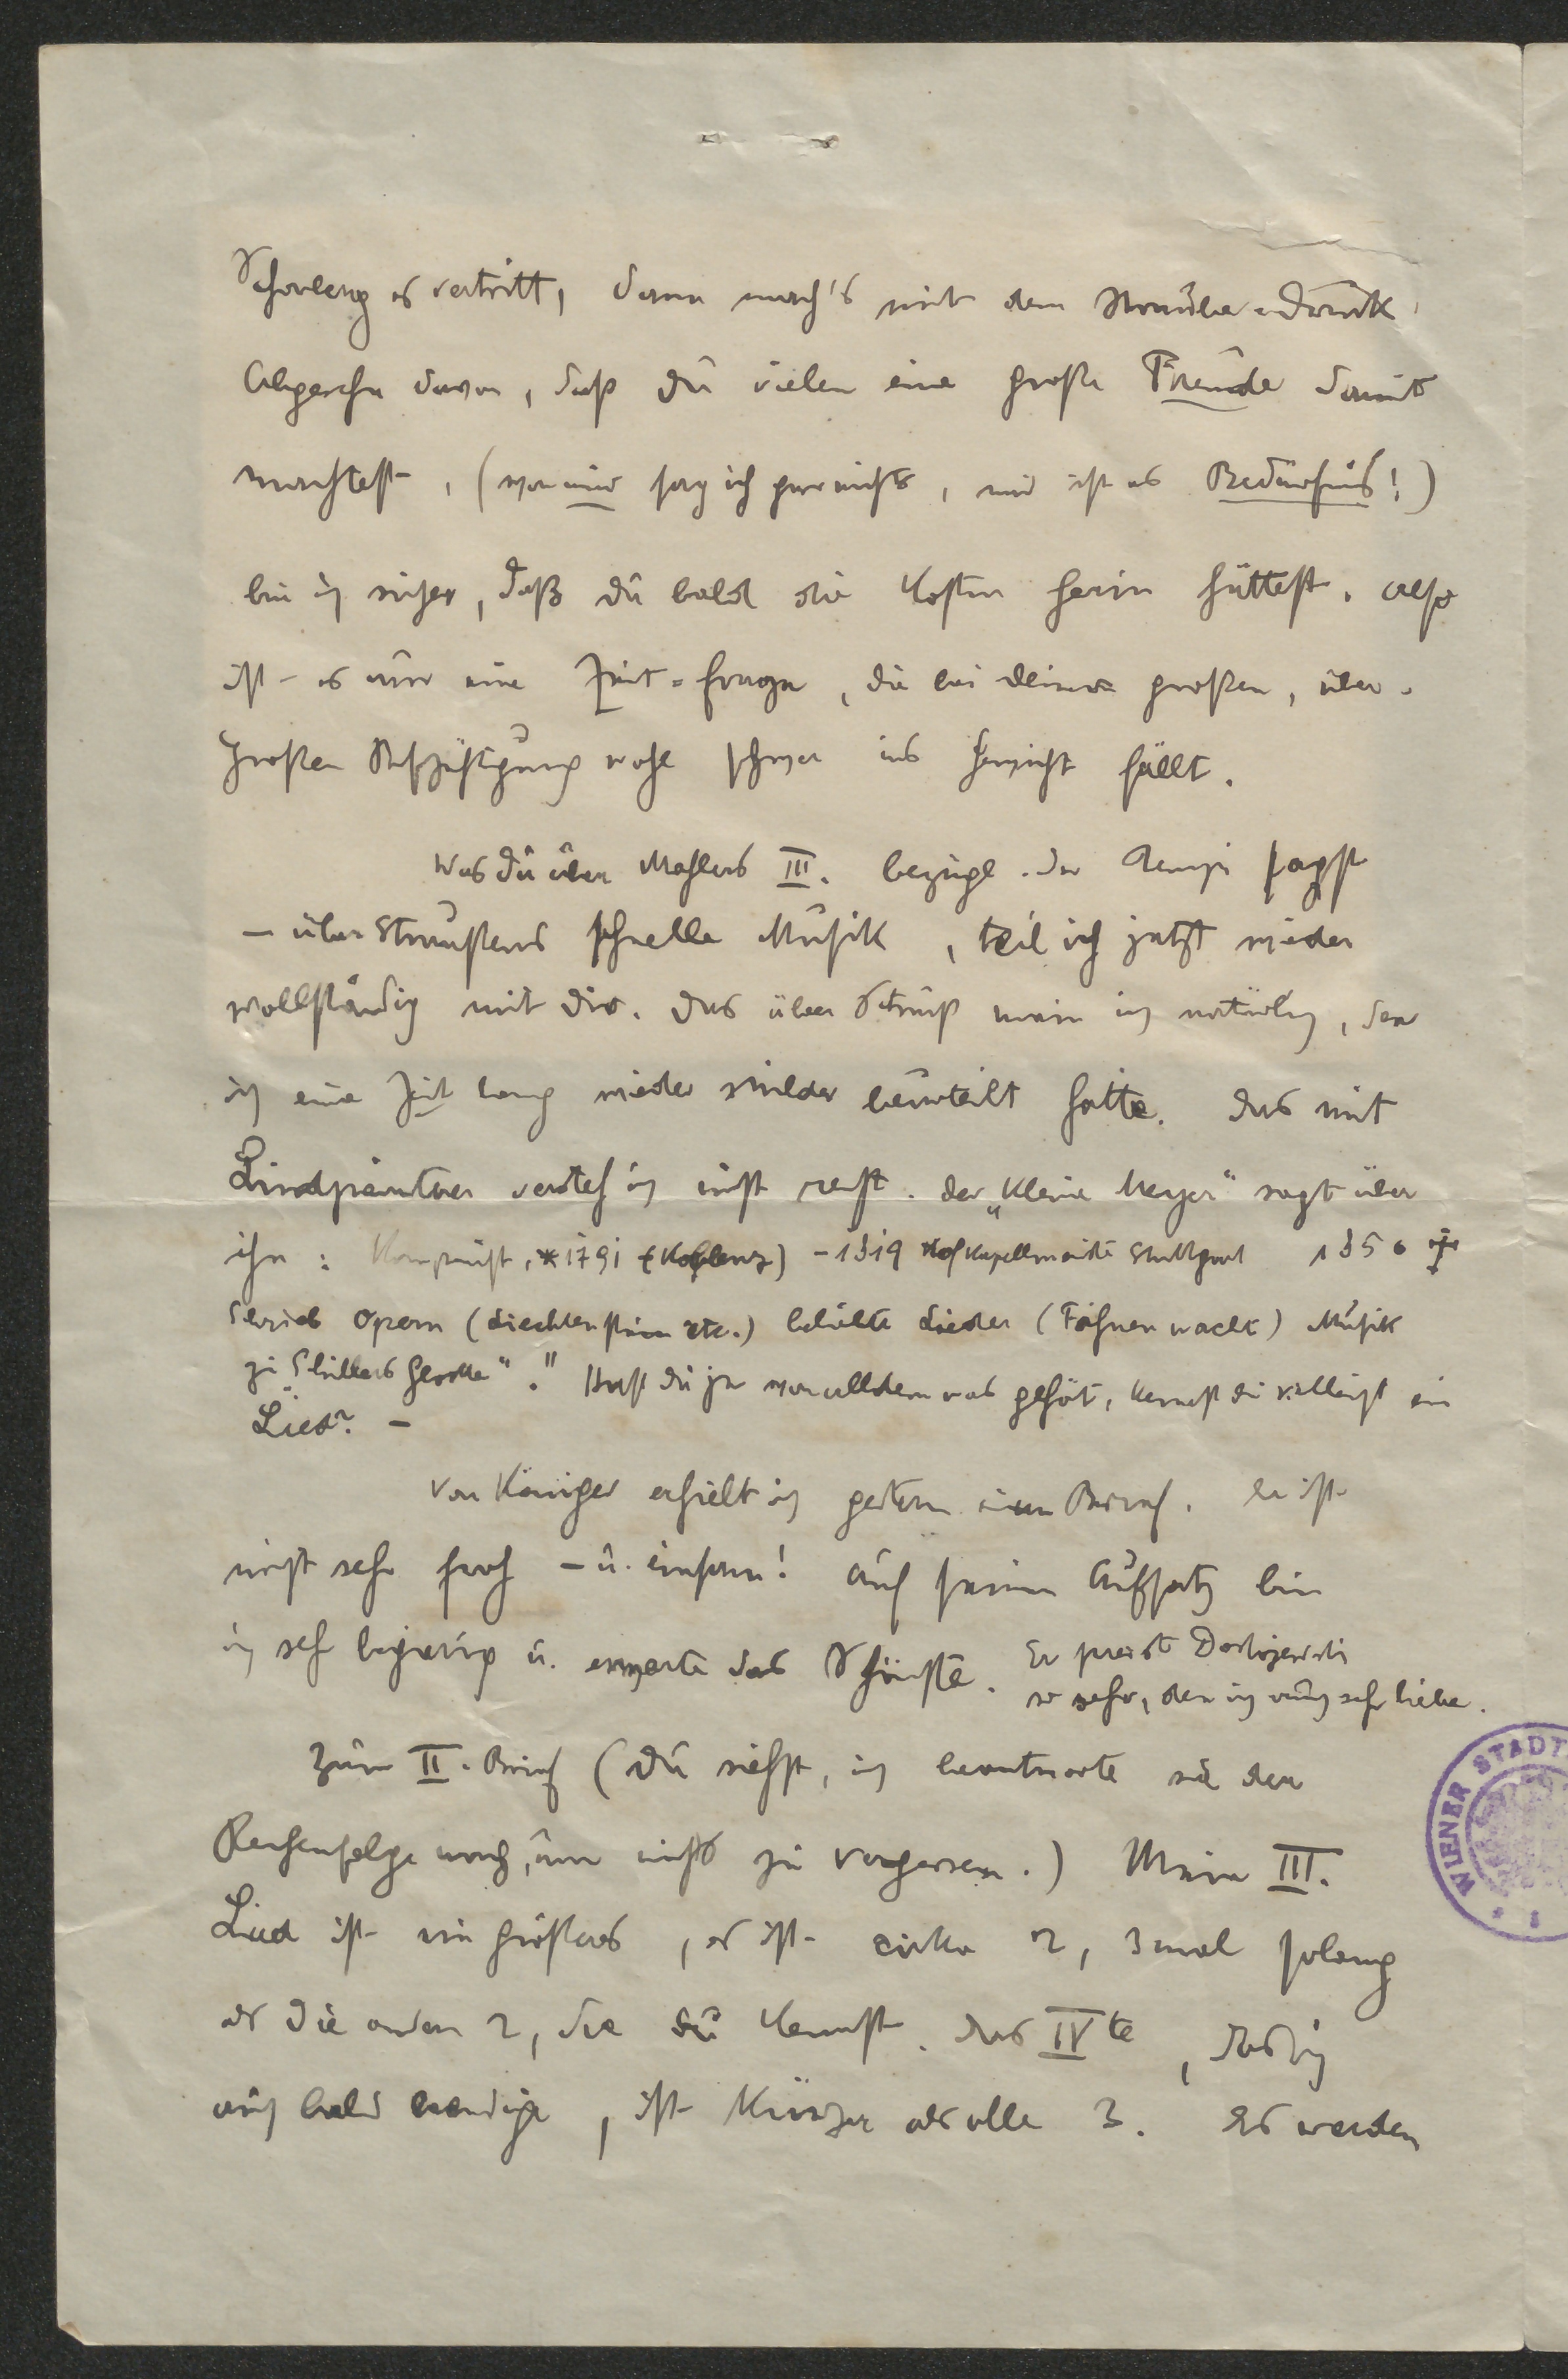 Schönberg es vertritt, dann mach's mit dem Strauber-Druck
Abgesehn davon, daß Du vielen eine große Freude damit
machtest, (von mir sag ich gar nichts, mir ist es Bedürfnis!)
bin ich sicher, daß Du bald die Kosten herin hättest. Also
ist es nur eine Zeit=frage, die bei Deiner großen, über-
großen Beschäftigung wohl schwer ins Gewicht fällt.
Was Du über Mahlers III. bezügl. der Tempi sagst
– über Straussens schnelle Musik, teil ich jetzt wieder
vollständig mit Dir. Das über Strauß mein ich natürlich, den
ich eine Zeit lang wieder milder beurteilt hatte. Das mit
Lindpaintner versteh ich nicht recht. Der „Kleine Meyer" sagt über
ihn: Komponist, *1791 (Koblenz) – 1819 Hofkapellmeister Stuttgart 1856 †
Schrieb Opern (Liechtenstein etc.) beliebte Lieder (Fahnenwacht) Musik
zu „Schillers Glocke"." Hast Du je von alldem was gehört, kennst Du vielleicht ein
Lied? –
Von Königer erhielt ich gestern einen Brief. Er ist
nicht sehr froh – u. einsam! Auf seinen Aufsatz bin
ich sehr begierig u. erwarte das Schönste. Er preist Dostojewski
so sehr, den ich auch sehr liebe.
Zum II. Brief (Du siehst, ich beantworte sie der
Reihenfolge nach, um nichts zu vergessen.) Mein III.
Lied ist ein größeres, es ist cirka 2, 3mal solang
als die andern 2, die Du kennst. Das IVte, das ich
auch bald beendige, ist kürzer als alle 3. Es werden
WIENER STADT